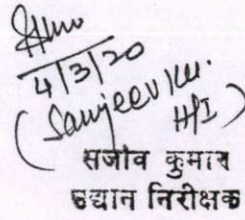 4/3/20
(Sanjeev Kr.
H/I)
सजीव कुमार
उद्यान निरीक्षक